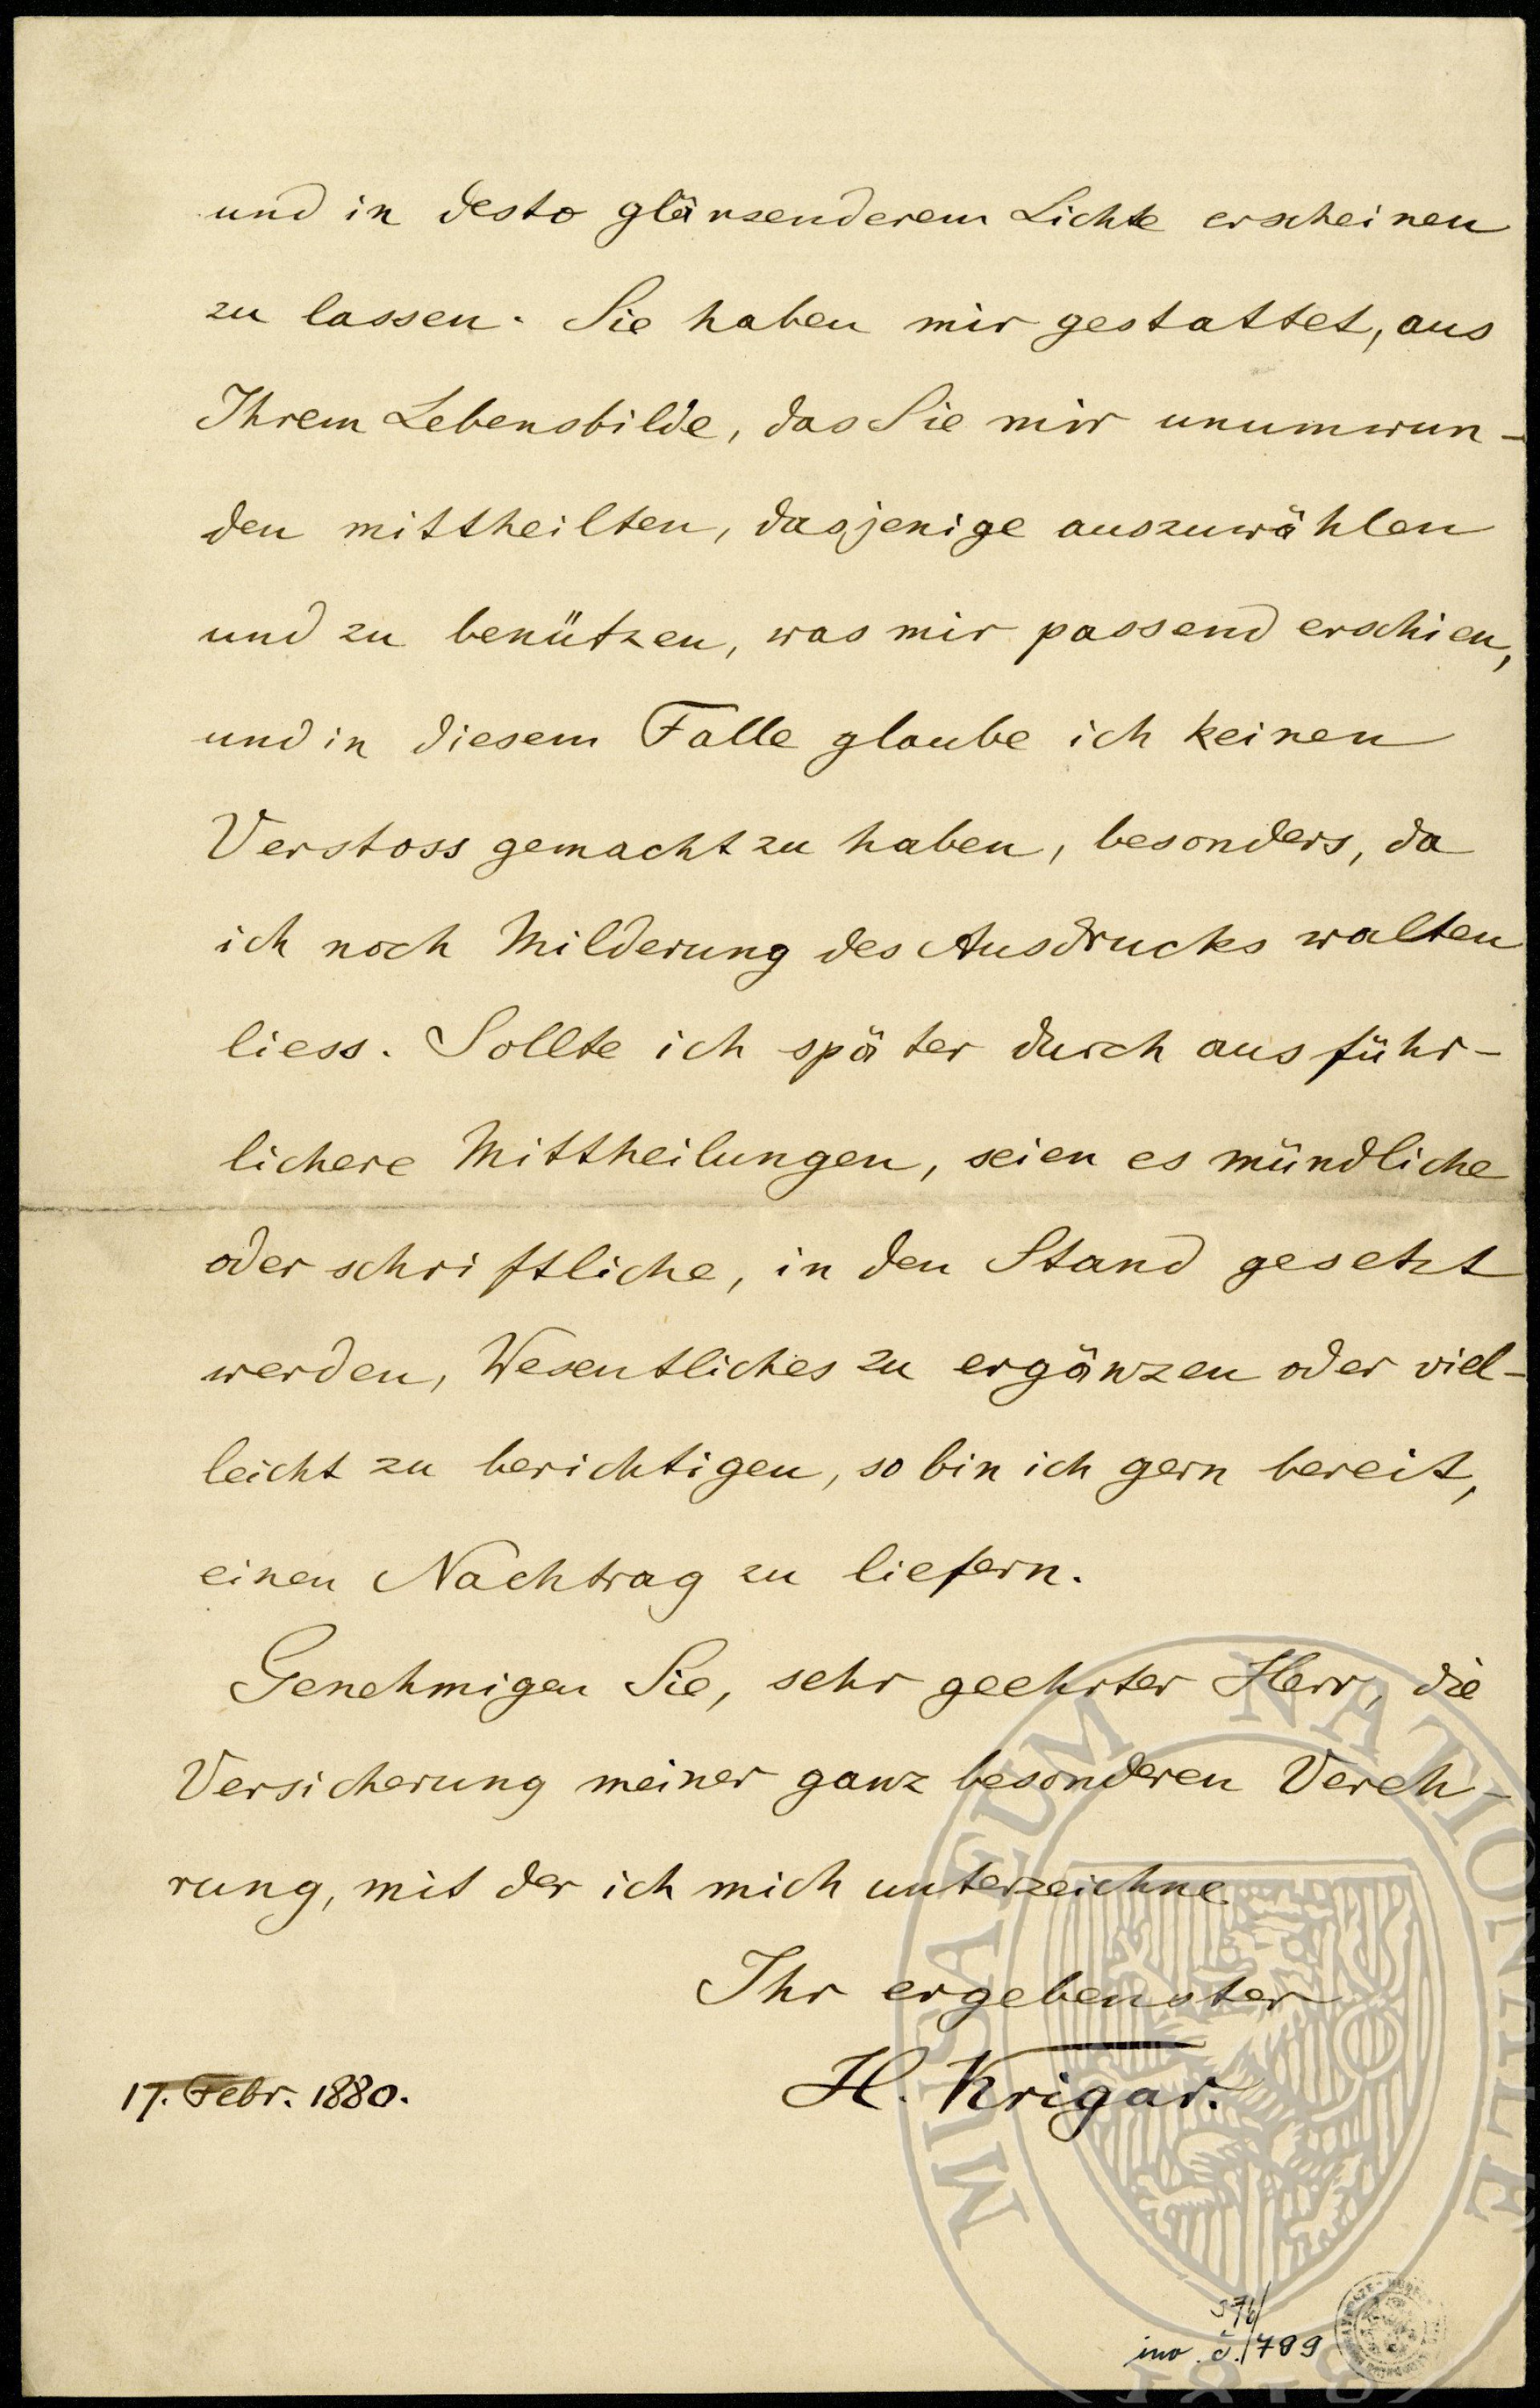 und in desto glänzenderem Lichte erscheinen
zu lassen. Sie haben mir gestattet, aus
Ihrem Lebensbilde, das Sie mir unumwun-
den mittheilten, dasjenige auszuwählen
und zu benützen, was mir passend erschien,
und in diesem Falle glaube ich keinen
Verstoss gemacht zu haben, besonders, da
ich noch Milderung des Ausdrucks walten
liess. Sollte ich später durch ausführ-
lichere Mittheilungen, seien es mündliche
oder schriftliche, in den Stand gesetzt
werden, Wesentliches zu ergänzen oder viel-
leicht zu berichtigen, so bin ich gern bereit,
einen Nachtrag zu liefern.
Genehmigen Sie, sehr geehrter Herr, die
Versicherung meiner ganz besonderen Vereh-
rung, mit der ich mich unterzeichne
Ihr ergebenster
H. Krigar.
17. Febr. 1880.
MUSAEUM NATIONALE
1818
inv. č. 1789